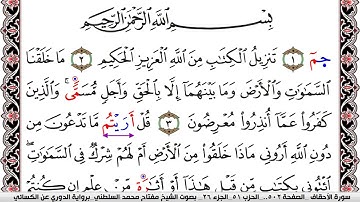 بِسْمِ ٱللَّهِ ٱلرَّحْمَٰنِ ٱلرَّحِيمِ
حمٓ ١ تَنزِيلُ ٱلْكِتَٰبِ مِنَ ٱللَّهِ ٱلْعَزِيزِ ٱلْحَكِيمِ ٢ مَا خَلَقْنَا
ٱلسَّمَٰوَٰتِ وَٱلْأَرْضَ وَمَا بَيْنَهُمَا إِلَّا بِٱلْحَقِّ وَأَجَلٍ مُّسَمًّى وَٱلَّذِينَ
كَفَرُوا۟ عَمَّآ أُنذِرُوا۟ مُعْرِضُونَ ٣ قُلْ أَرَيْتُم مَّا تَدْعُونَ مِن
دُونِ ٱللَّهِ أَرُونِى مَاذَا خَلَقُوا۟ مِنَ ٱلْأَرْضِ أَمْ لَهُمْ شِرْكٌ فِى ٱلسَّمَٰوَٰتِ
ٱئْتُونِى بِكِتَٰبٍ مِّن قَبْلِ هَٰذَآ أَوْ أَثَٰرَةٍ مِّنْ عِلْمٍ إِن كُنتُمْ
سورة الأحقاف . الصفحة ٥٠٢ . الحزب ٥١ . الجزء ٢٦ . بصوت الشيخ مفتاح محمد السلطني برواية الدوري عن الكسائي